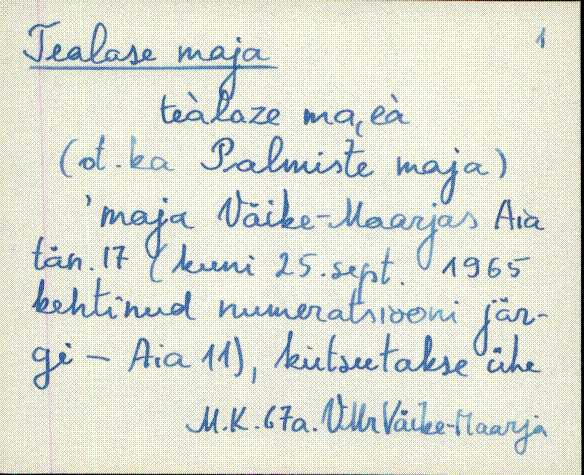 Tealase maja 1
teàlaze ma,eà
(ot. ka Palmiste maja)
'maja Väike-Maarjas Aia
tän. 17 (kuni 25. sept. 1965
kehtinud numeratsiooni jär-
gi – Aia 11), kutsutakse ühe
M.K. 67a. VMr Väike-Maarja